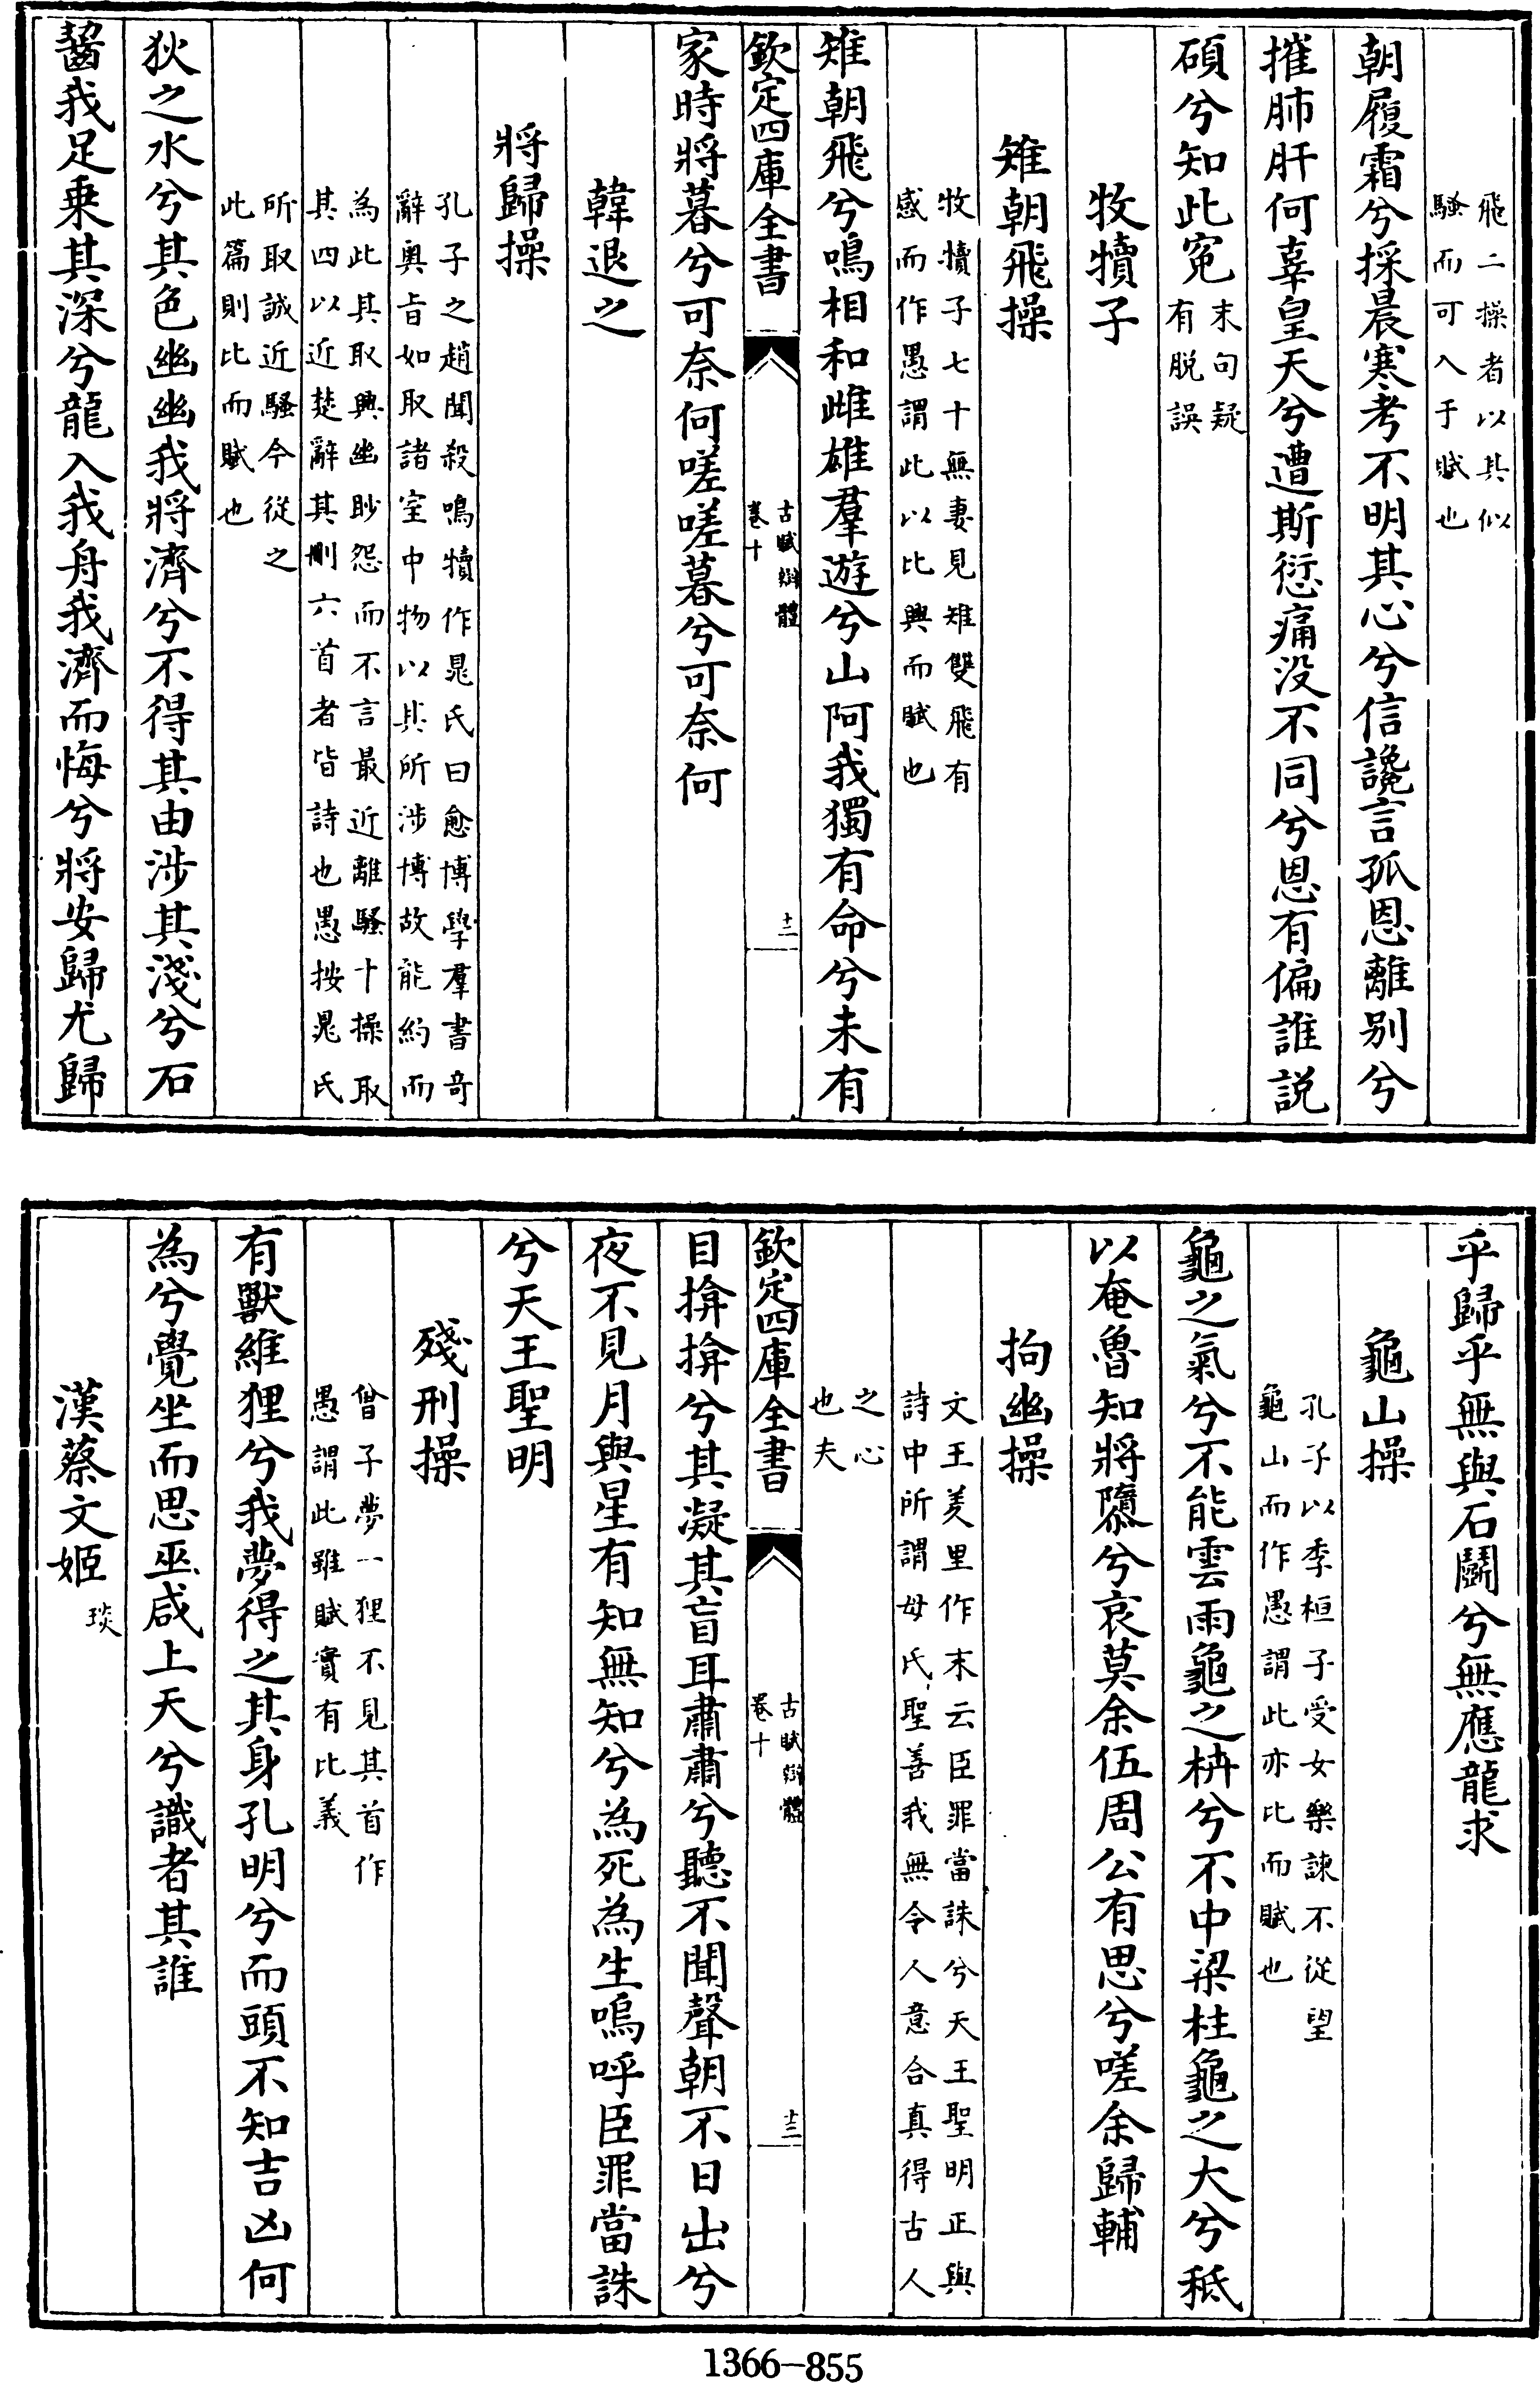 飛二操者以其似
騷而可入于賦也
朝履霜兮採晨寒考不明其心兮信讒言孤恩離别兮
摧肺肝何辜皇天兮遭斯愆痛没不同兮恩有偏誰説
碩兮知此寃末句疑
有脱誤
牧犢子
雉朝飛操
牧犢子七十無妻見雉雙飛有
感而作愚謂此以比興而賦也
雉朝飛兮鳴相和雌雄羣遊兮山阿我獨有命兮未有
欽定四庫全書
古賦辯體
卷十
十二
家時將暮兮可奈何嗟嗟暮兮可奈何
韓退之
將歸操
孔子之趙聞殺鳴犢作晁氏曰愈博學羣書奇
辭奥㫖如取諸室中物以其所涉博故能約而
為此其取興幽眇怨而不言最近離騷十操取
其四以近楚辭其刪六首者皆詩也愚按晁氏
所取誠近騷今從之
此篇則比而賦也
狄之水兮其色幽幽我將濟兮不得其由涉其淺兮石
齧我足乗其深兮龍入我舟我濟而悔兮將安歸尤歸
乎歸乎無與石鬭兮無應龍求
龜山操
孔子以季桓子受女樂諫不從望
龜山而作愚謂此亦比而賦也
龜之氣兮不能雲雨龜之枿兮不中梁柱龜之大兮秪
以奄魯知將隳兮哀莫余伍周公有思兮嗟余歸輔
拘幽操
文王羑里作末云臣罪當誅兮天王聖明正與
詩中所謂母氏聖善我無令人意合真得古人
之心
也夫
欽定四庫全書
古賦辯體
卷十
十三
目揜揜兮其凝其盲耳肅肅兮聽不聞聲朝不日出兮
夜不見月與星有知無知兮為死為生嗚呼臣罪當誅
兮天王聖明
殘刑操
曾子夢一狸不見其首作
愚謂此雖賦實有比義
有獸維狸兮我夢得之其身孔明兮而頭不知吉凶何
為兮覺坐而思巫咸上天兮識者其誰
漢蔡文姬琰
1366—855